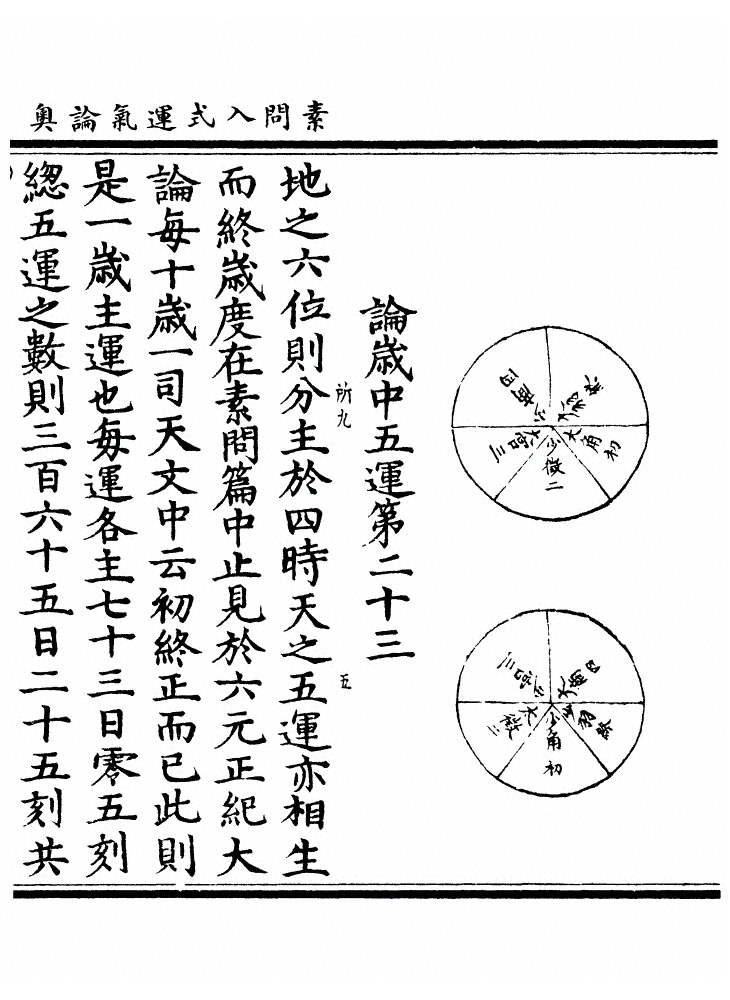 素問入式運氣論奧
大角初
少徵二
大宮三
少商四
大羽終
少角初
大徵二
少宮三
大商四
少羽終
論歳中五運第二十三
所九
五
地之六位則分主於四時天之五運亦相生
而終歳度在素問篇中止見於六元正紀大
論每十歳一司天文中云初終正而已此則
是一歳主運也每運各主七十三日零五刻
緫五運之數則三百六十五日二十五刻共